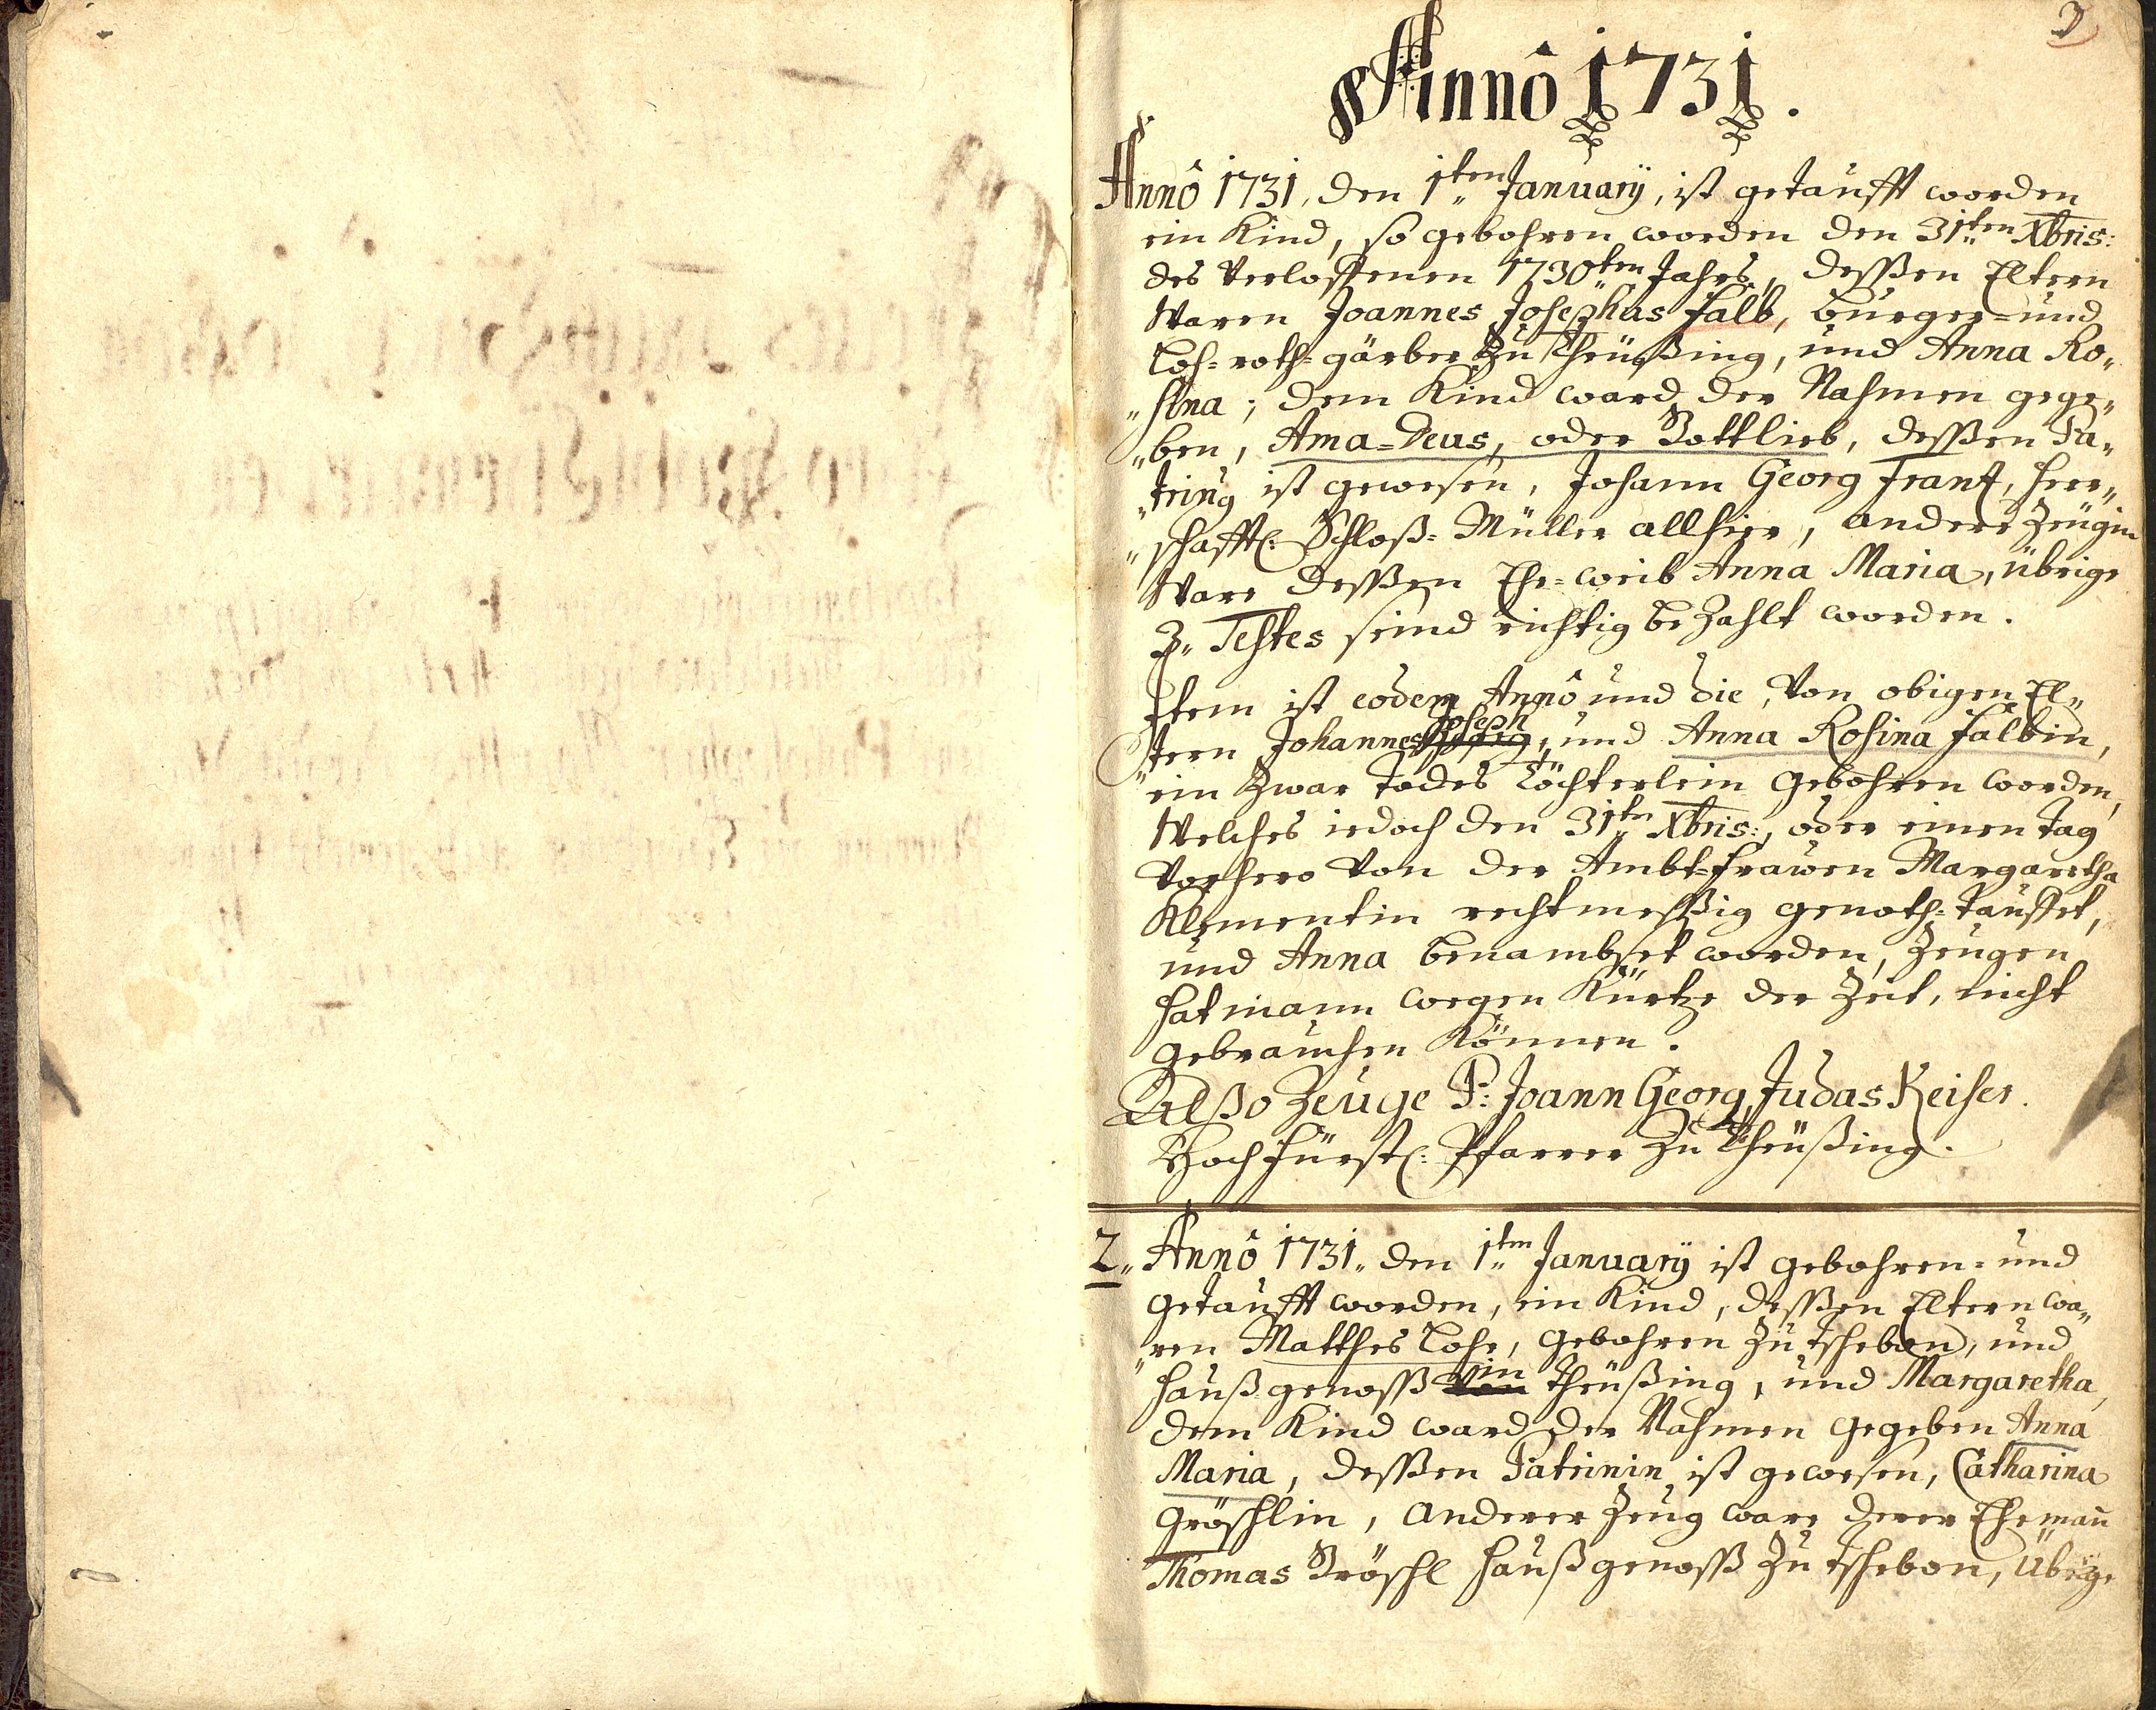 2
Annô 1731.
Annô 1731, den 1ten January, ist getaufft worden
ein Kind, so gebohren worden den 31ten Xbris:
des verloffenen 1730ten Jahrs, deßen Eltern
Waren Joannes Josephus Falb, burger= und
Loh=roth=gärber zu Theüßing, und Anna Ro„
„sina; dem Kind ward der Nahmen gege„
„ben, Ama=Deus, oder Gottlieb, deßen Pa„
„tring ist gewesen, Johann Georg Frantz, herr„
„schafftl: Schloß=Müller allhier, andere Zeugin
Ware deßen Ehe=weib Anna Maria, übrige
Testes seind richtig bezahlt worden.
Item ist eodem Annô und die, Von obigen El„
„tern Johannes Joseph, und Anna Rosina Falbin,
ein zwar todes töchterlein gebohren worden,
Welches iedoch den 31ten Xbris:, oder einen tag
Vorhero Von der Ambt=frawen Margaretha
Klementin rechtmeßig genoth=tauffet,
und Anna benambset worden, Zeugen
hat mann wegen Kürtze der Zeit, nicht
gebrauchen Können.
Alßo Zeuge P: Joann Georg Judas Keiser.
Hoch Fürstl: Pfarrer zu Theüßing.
2„ Annô 1731„ den 1ten January ist gebohren= und
getaufft worden, ein Kind, deßen Eltern wa„
„ren Matthes Lohr, gebohren zu Tschebon, und
haußgenoss in Theüßing, und Margaretha,
dem Kind ward der Nahmen gegeben Anna
Maria, deßen Patrinin ist gewesen, Catharina
Gröschlin, anderer Zeug ware derer Ehemañ
Thomas Gröschl haußgenoss zu Tschebon, übrige